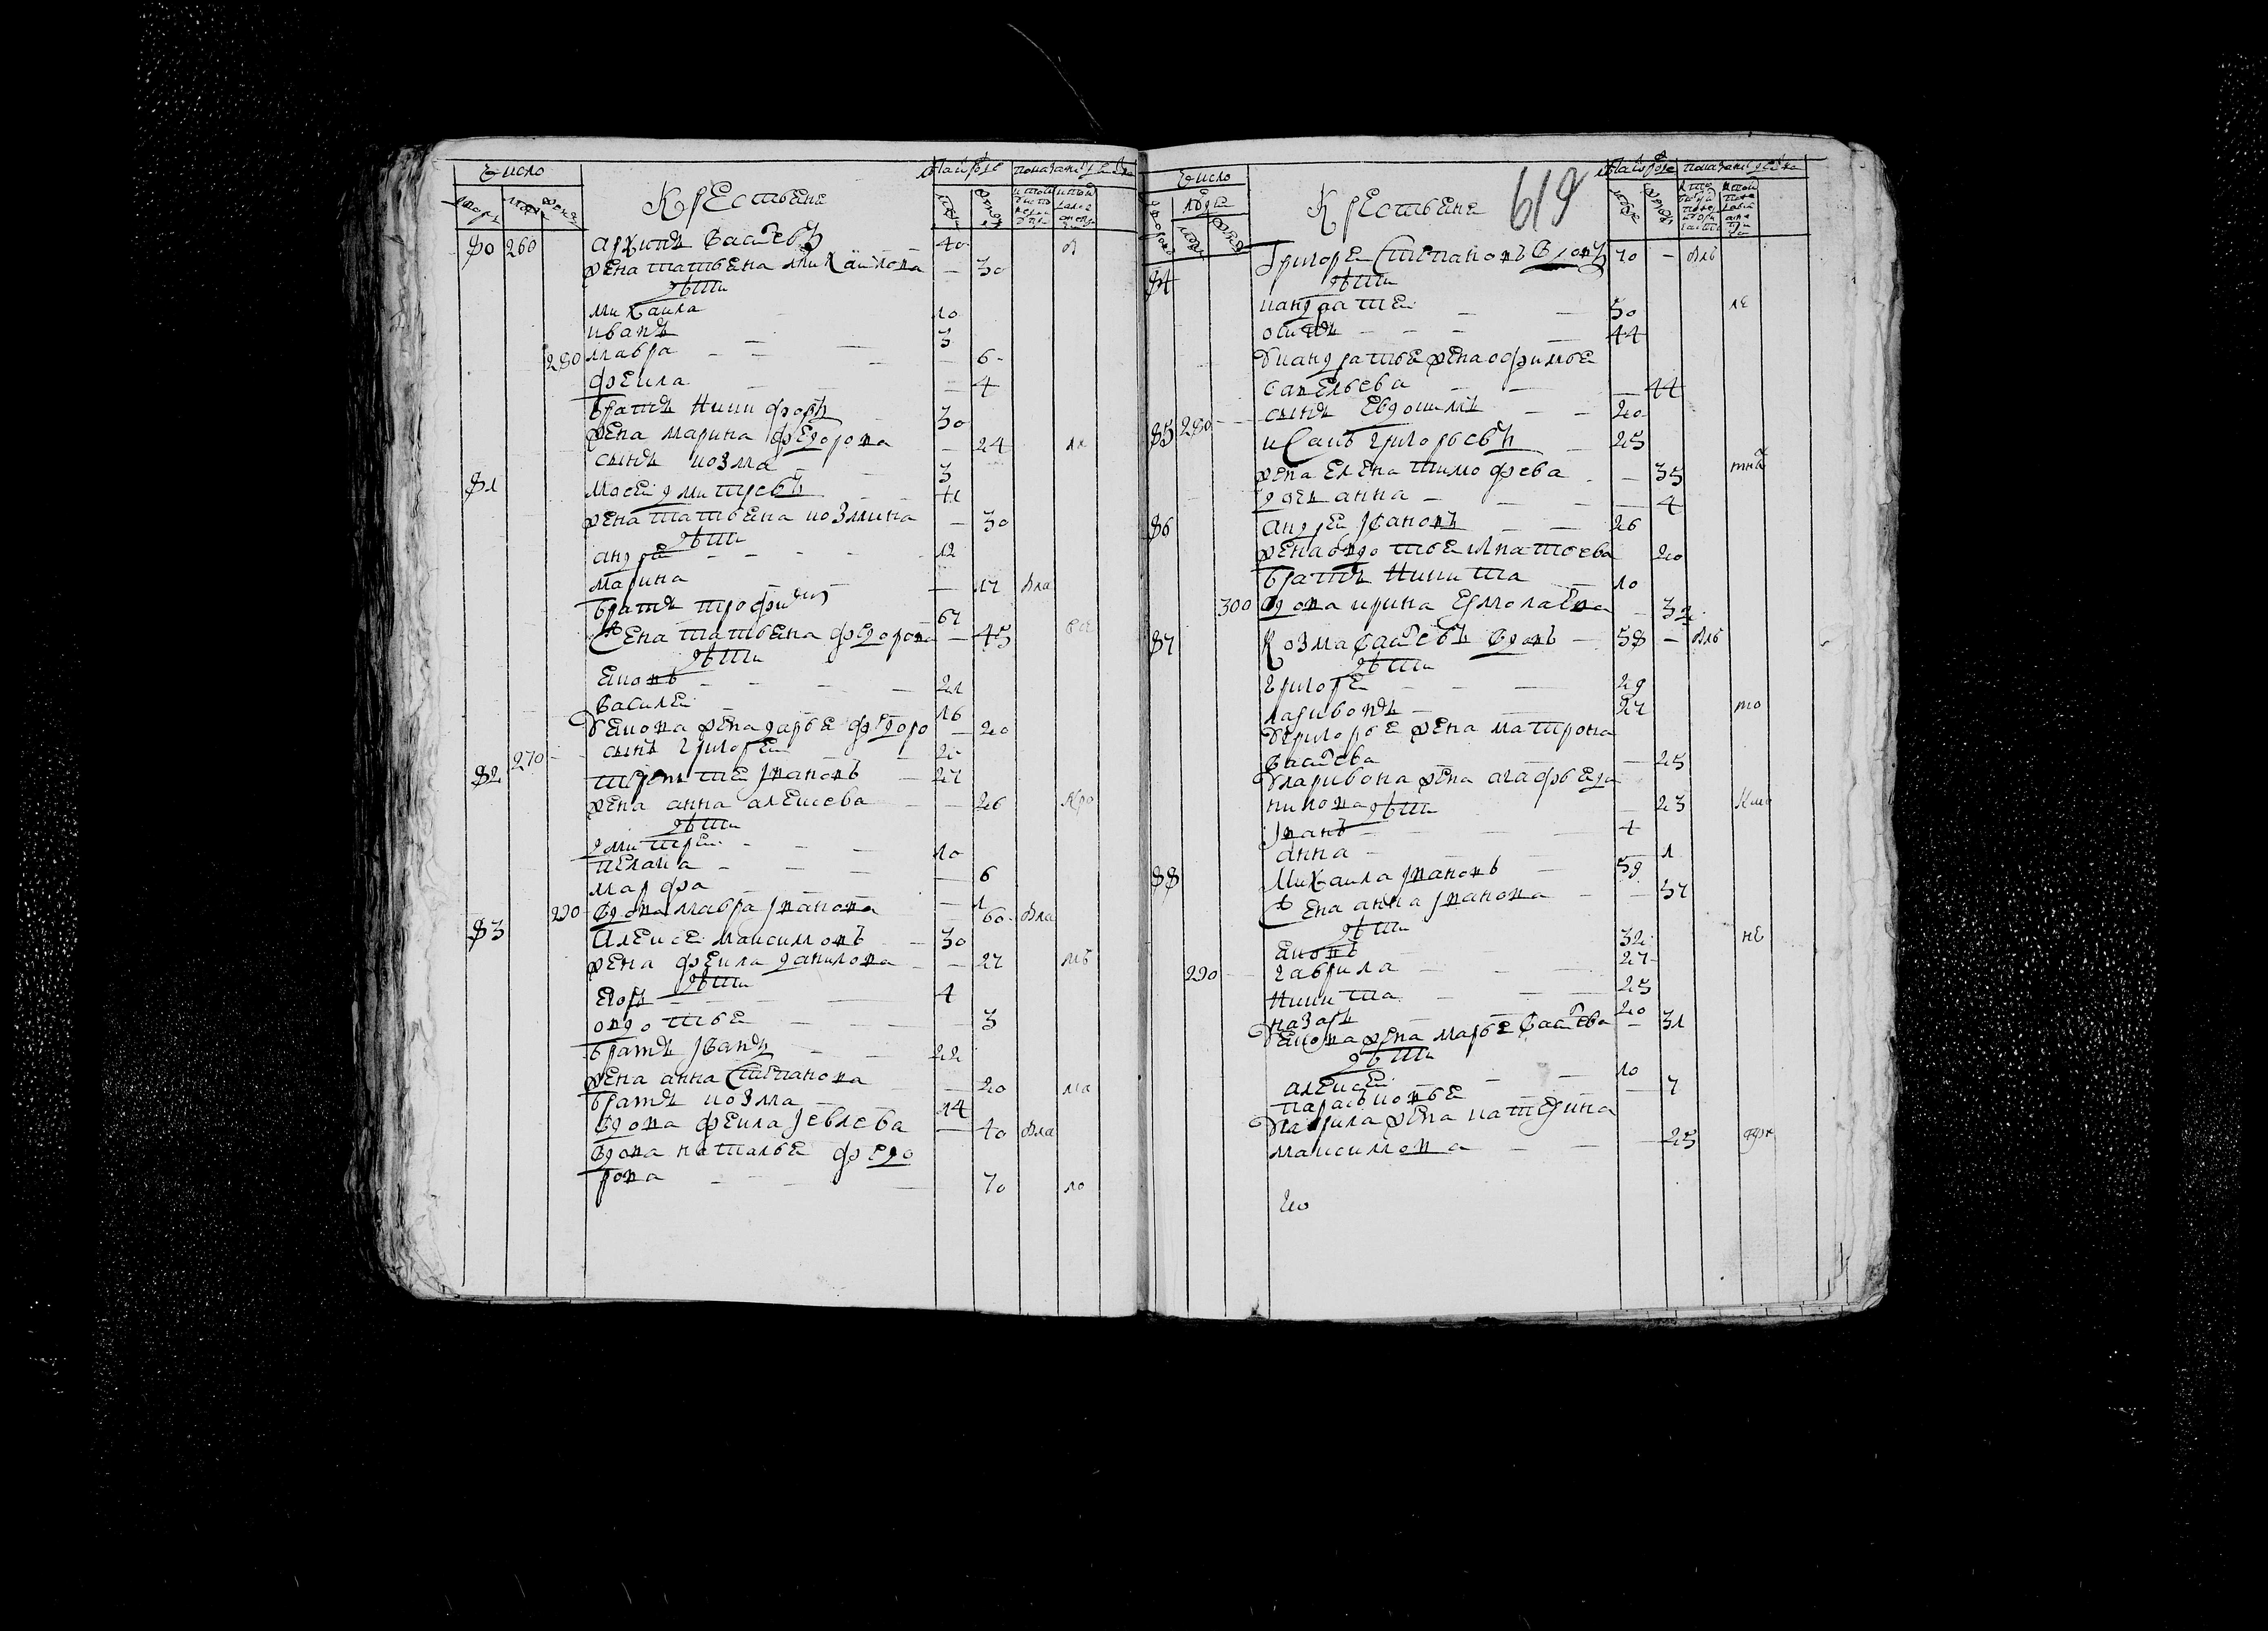 число
Крестьяне
80 260 архипъ васильевъ 40
жена татьяна михаилова — 30
дети
михаила 10
иванъ 3
280 мавра — 6
фекла — 4
братъ никифоръ 30
жена марина федорова — 24
сынъ козма 3
81 мосей дмитревъ 41
жена татьяна козмина — 30
дети
андрей 12
марина — 17 вла
братъ трофимъ 67
жена татьяна федорова — 45
дети
ековъ 21
василей 16
у екова жена дарье федоро — 20
270 сынъ григорей 2
82 терентей ивановъ 27
жена анна алексева — 26
дети
дмитрей 10
пелагиа — 6
марфа — 1
290 вдова мавра иванова — 60 вла
83 алексей максимовъ 30
жена фекла данилова — 27
дети
егоръ 4
овдотье — 3
братъ иванъ 22
жена анна степанова — 20
братъ козма 14
вдова фекла иевлева — 40 вла
вдова наталье федо
рова — 70
число
люди
Крестьяне
619
84 григорей степановъ вдовъ 70 —
дети
кандратей 50
осипъ 44
у кандратье жена офимье
савельева — 44
сынъ евдокимъ 20
85 280 исаиъ григорьевъ 25
жена елена тимофева — 35
дочь анна — 4
86 андрей ивановъ 26
жена овдотье игнатьева 20
братъ никита 10
300 вдова ирина ермолаева — 32
87 козма васильевъ вдовъ 58 —
дети
григорей 29
ларивонъ 27
у григорье жена матрона
васильева — 25
у ларивона жена агафье да
нилова — 23
дети
иванъ 4
анна — 1
88 михаила ивановъ 59
жена анна иванова — 57
дети
екофъ 32
290 гаврила 27
никита 25
назаръ 20
у екова жена марье васильева — 31
дети
алексей 10
парасковье — 7
у гаврила жена катерина
максимова — 25
20